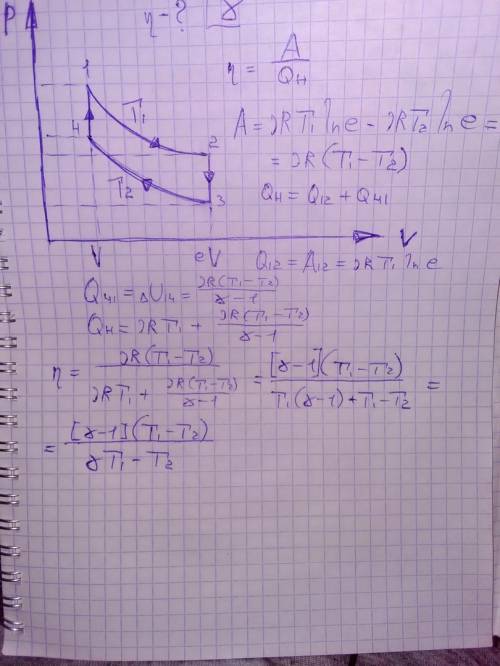 P
η - ? γ
η = A / Qн
1
T₁
4
2
T₂
3
A = νRT₁ ln e - νRT₂ ln e =
= νR(T₁ - T₂)
Qн = Q₁₂ + Q₄₁
V eV V
Q₁₂ = A₁₂ = νRT₁ ln e
Q₄₁ = ΔU₁₄ = νR(T₁ - T₂) / γ - 1
Qн = νRT₁ + νR(T₁ - T₂) / γ - 1
η = νR(T₁ - T₂) / νRT₁ + νR(T₁ - T₂) / γ - 1 = [γ - 1](T₁ - T₂) / T₁(γ - 1) + T₁ - T₂ =
= [γ - 1](T₁ - T₂) / γT₁ - T₂